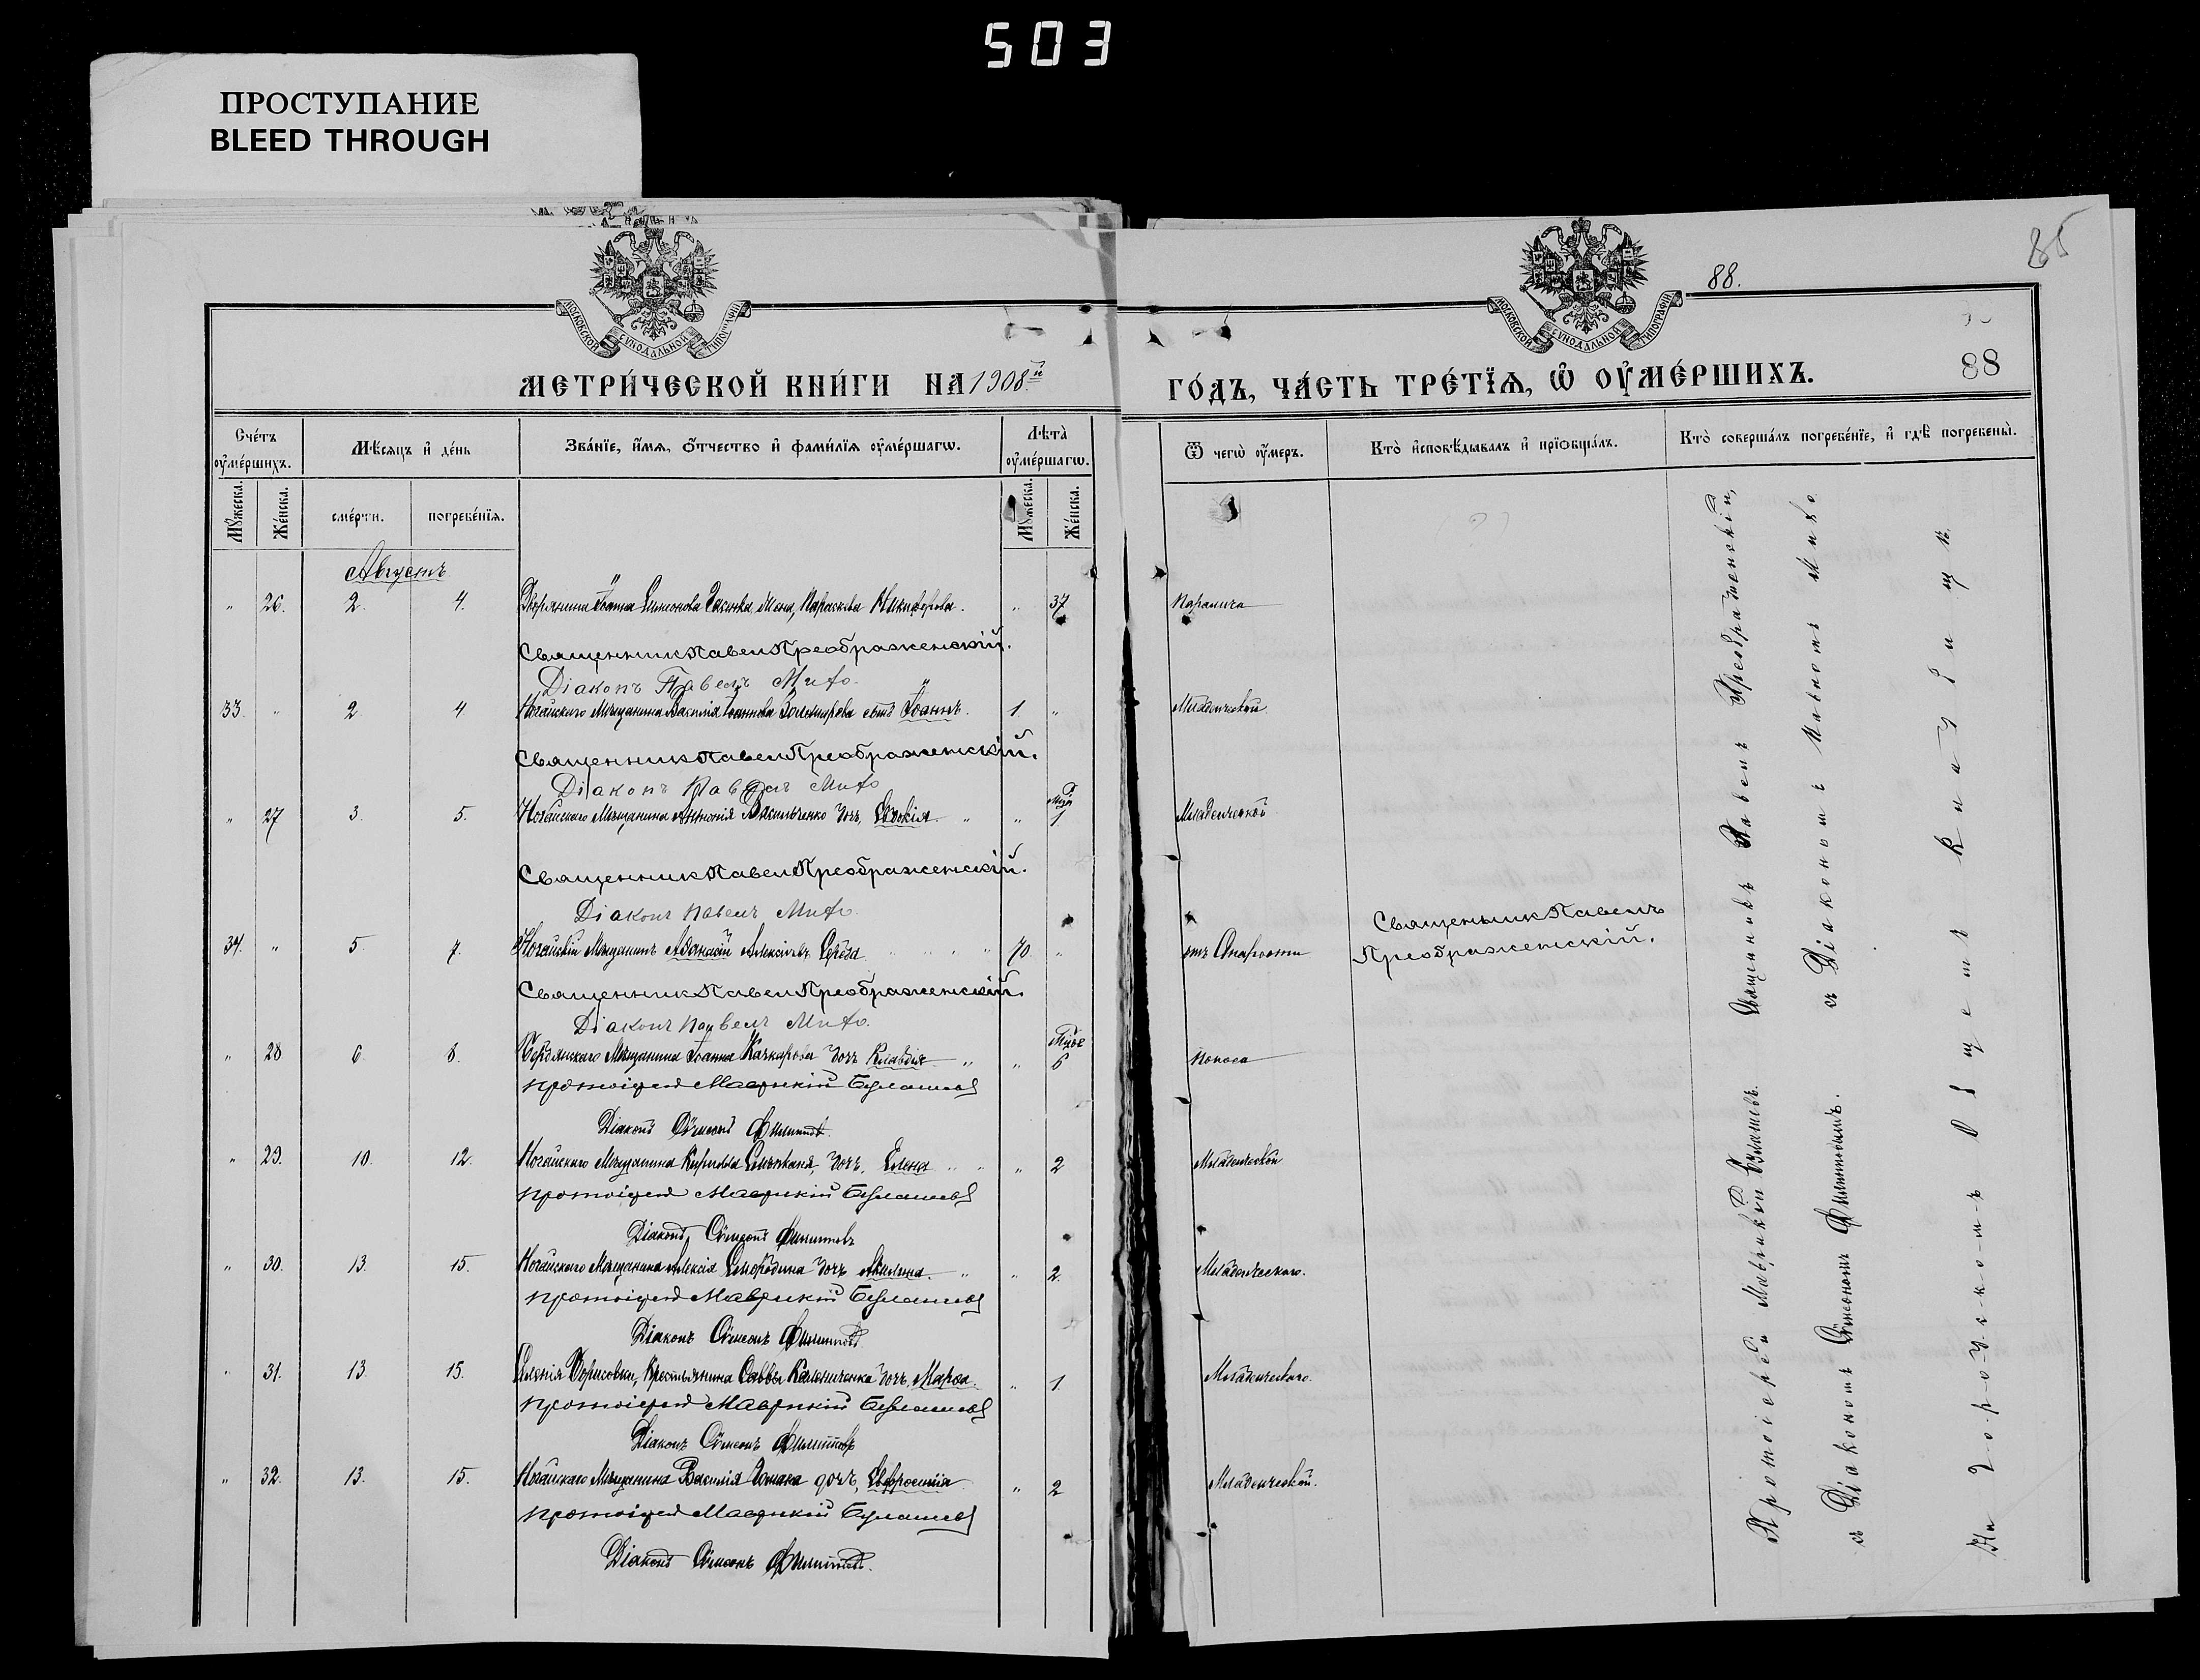 503
ПРОСТУПАНИЕ
BLEED THROUGH
85
88.
МОСКОВСКОЙ СУНОДАЛЬНОЙ ТИПОГРАФІИ
МОСКОВСКОЙ СУНОДАЛЬНОЙ ТИПОГРАФІИ
88
МЕТРИ́ЧЕСКОЙ КНИ́ГИ НА 1908й ГО́ДЪ, ЧА́СТЬ ТРЕ́ТЇѦ, Ѡ ОУ҆МЕ́РШИХЪ.
Сче́тъ оу҆ме́ршихъ.
Мѣ́сѧцъ и҆ де́нь
Зва́нїе, и҆́мѧ, ѻ҆́тчество и҆ фами́лїѧ оу҆ме́ршагѡ.
Лѣ́та оу҆ме́ршагѡ.
Ѿ чегѡ̀ оу҆́меръ.
Кто̀ и҆сповѣ́дывалъ и҆ прїѡбща́лъ.
Кто̀ соверша́лъ погребе́нїе, и҆ гдѣ̀ погребены̀.
Мꙋ́жеска.
Же́нска.
сме́рти.
погребе́нїѧ.
Мꙋ́жеска.
Же́нска.
Августъ
" 26. 2. 4. Дворянина Іоанна Симонова жена, Параскева Никифорова. " 37 Паралича
Священник Павел Преображенскій.
Діаконъ Павелъ Михо.
33. " 2 4 Ногайскаго Мѣщанина Василія Іоаннова сынъ Іоаннъ. 1. " Младенческой.
Священник Павел Преображенскій.
Діаконъ Павелъ Михо
" 27 3. 5. Ногайскаго Мѣщанина Антонія Васильченко дочь, Евдокія " " 1 Младенческой
Священник Павел Преображенскій.
Діаконъ Павелъ Михо.
34. " 5. 7. Ногайскій Мѣщанинъ Аѳанасій Алексѣевъ Середа 70. " отъ Старости
Священник Павелъ
Преображенскій.
Священник Павел Преображенскій.
Діаконъ Павелъ Михо.
" 28 6. 8. Бердянскаго Мѣщанина Іоанна Качкарова дочь Клавдія " " 6 Поноса
Протоіерей Маврикій Булашевъ
Діаконъ Сѵмеонъ Филиповъ
" 29. 10. 12. Ногайскаго Мѣщанина Кирилла дочь, Елена " 2 Младенческой
Протоіерей Маврикій Булашевъ
Діаконъ Сѵмеонъ Филиповъ
" 30. 13. 15. Ногайскаго Мѣщанина Алексія Смородина дочь Акилина. " 2. Младенческаго.
Протоіерей Маврикій Булашевъ
Діаконъ Сѵмеонъ Филиповъ
" 31. 13. 15. Селенія Борисовки, Крестьянина Саввы Калениченка дочь, Марѳа. " 1. Младенческаго.
Протоіерей Маврикій Булашевъ
Діаконъ Сѵмеонъ Филиповъ
" 32. 13. 15. Ногайскаго Мѣщанина Василія дочь, Евфросинія " 2 Младенческой.
Протоіерей Маврикій Булашевъ
Діаконъ Сѵмеонъ Филиповъ.
Священникъ Павелъ Преображенскій,
съ Діакономъ Павломъ Михо
Протоіерей Маврикій Булашевъ.
съ Діакономъ Сѵмеономъ Филиповымъ.
На городскомъ общемъ кладбищѣ.